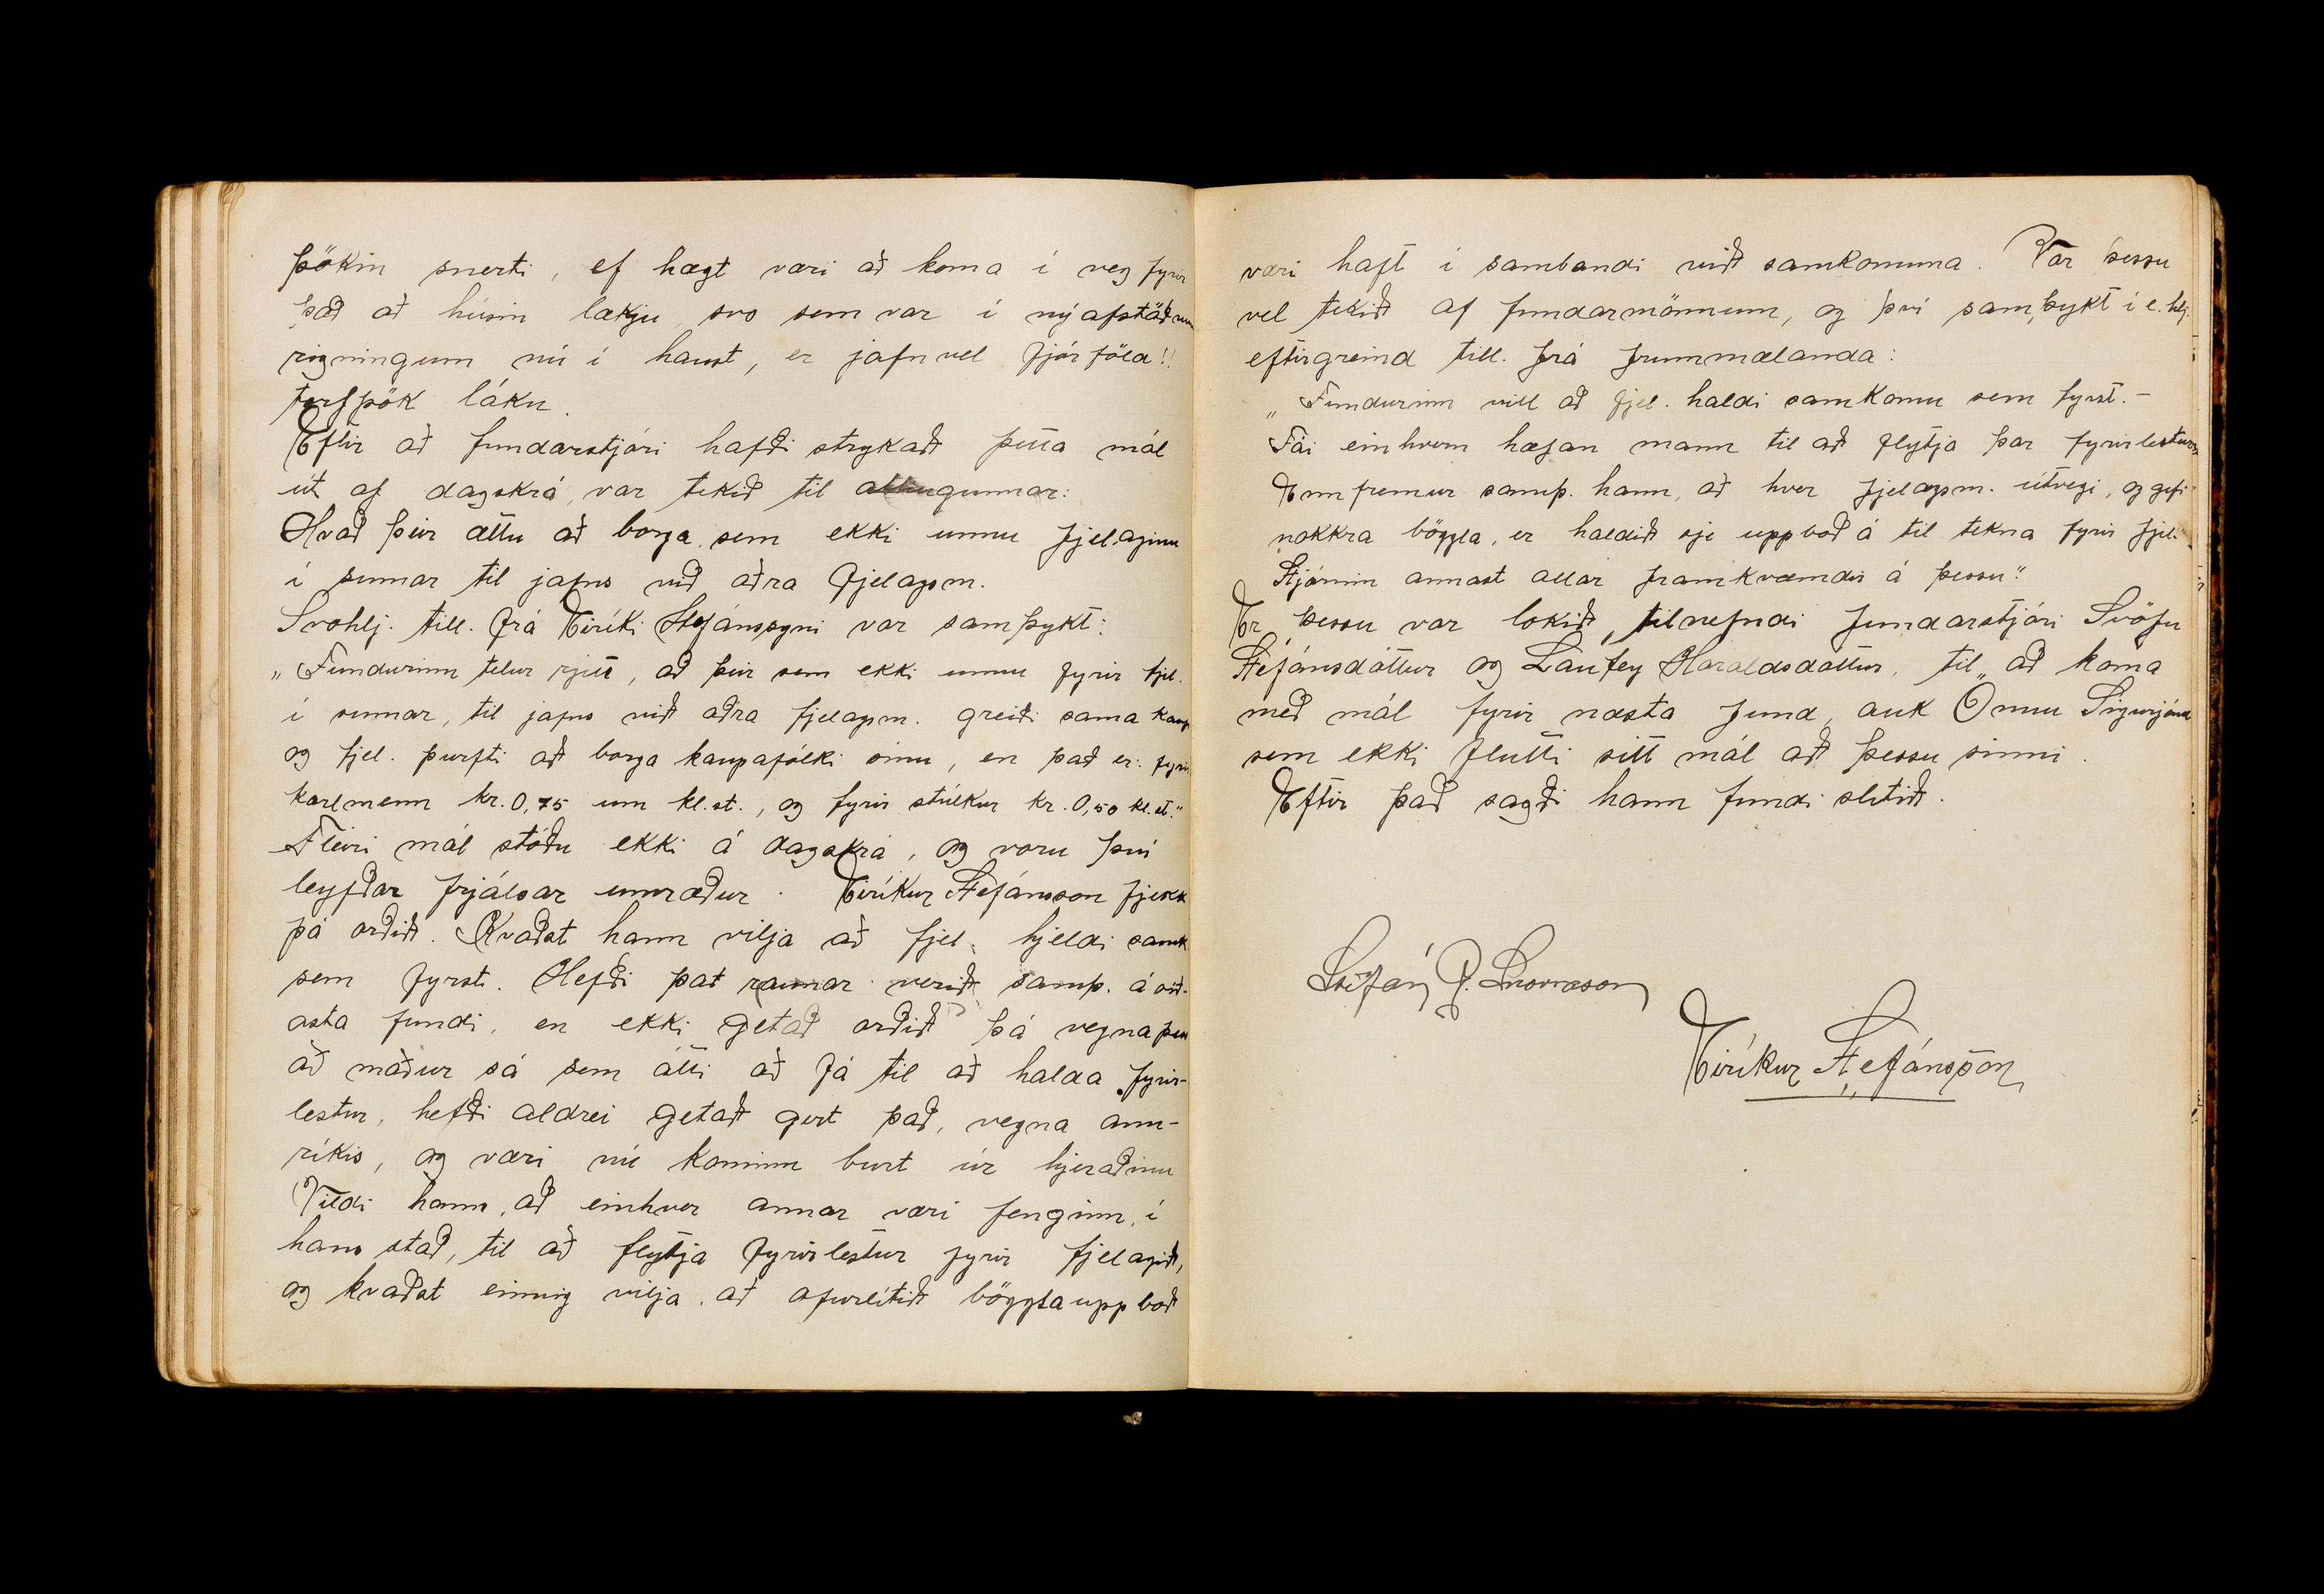 þökin snerti, ef hægt væri að koma í veg fyrir
það að húsin lækju svo sem var í nýafstöðnum
rigningum nú í haust, er jafnvel fjórföld!!
torfþök láku.
Eftir að fundarstjóri hafði strykað þetta mál
út af dagskrá, var tekið til athugunnar:
Hvað þeir ættu að borga sem ekki unnu fjelaginu
í sumar til jafns við aðra fjelagsm.
Svohlj. till. frá Eiríki Stefánssyni var samþykt:
„Fundurinn telur rjett, að þeir sem ekki unnu fyrir fjel.
í sumar, til jafns við aðra fjelagsm. greiði sama kaup
og fjel. þurfti að borga kaupafólki sínu, en það er: fyrir
karlmenn kr. 0,75 um kl.st., og fyrir stúlkur kr. 0,50 kl.st."
Fleiri mál stóðu ekki á dagskrá, og voru því
leyfðar frjálsar umræður. Eiríkur Stefánsson fjekk
þá orðið. Kvaðst hann vilja að fjel. hjeldi samk.
sem fyrst. Hefði það raunar verið samþ. á síð-
asta fundi, en ekki getað orðið þá vegna þess
að maður sá sem átti að fá til að halda fyrir-
lestur, hefði aldrei getað gert það, vegna ann-
ríkis, og væri nú kominn burt úr hjeraðinu
Vildi hann, að einhver annar væri fenginn, í
hans stað, til að flytja fyrirlestur fyrir fjelagið,
og kvaðst einnig vilja að ofurlítið bögglauppboð
væri haft í sambandi við samkomuna. Var þessu
vel tekið af fundarmönnum, og því samþykt í e. hlj.
eftirgreind till. frá frummælanda:
„Fundurinn vill að fjel. haldi samkomu sem fyrst. –
Fái einhvern hæfan mann til að flytja þar fyrirlestur
Ennfremur samþ. hann, að hver fjelagsm. útvegi, og gefi
nokkra böggla, er haldið sje uppboð á til tekna fyrir fjel.
Stjórnin annast allar framkvæmdir á þessu"
Er þessu var lokið, tilnefndi fundarstjóri Svöfu
Stefánsdóttur og Laufey Haraldsdóttur, til að koma
með mál fyrir næsta fund, auk Önnu Sigurjónsd
sem ekki flutti sitt mál að þessu sinni.
Eftir það sagði hann fundi slitið.
Stefán P.
Eiríkur Stefánsson